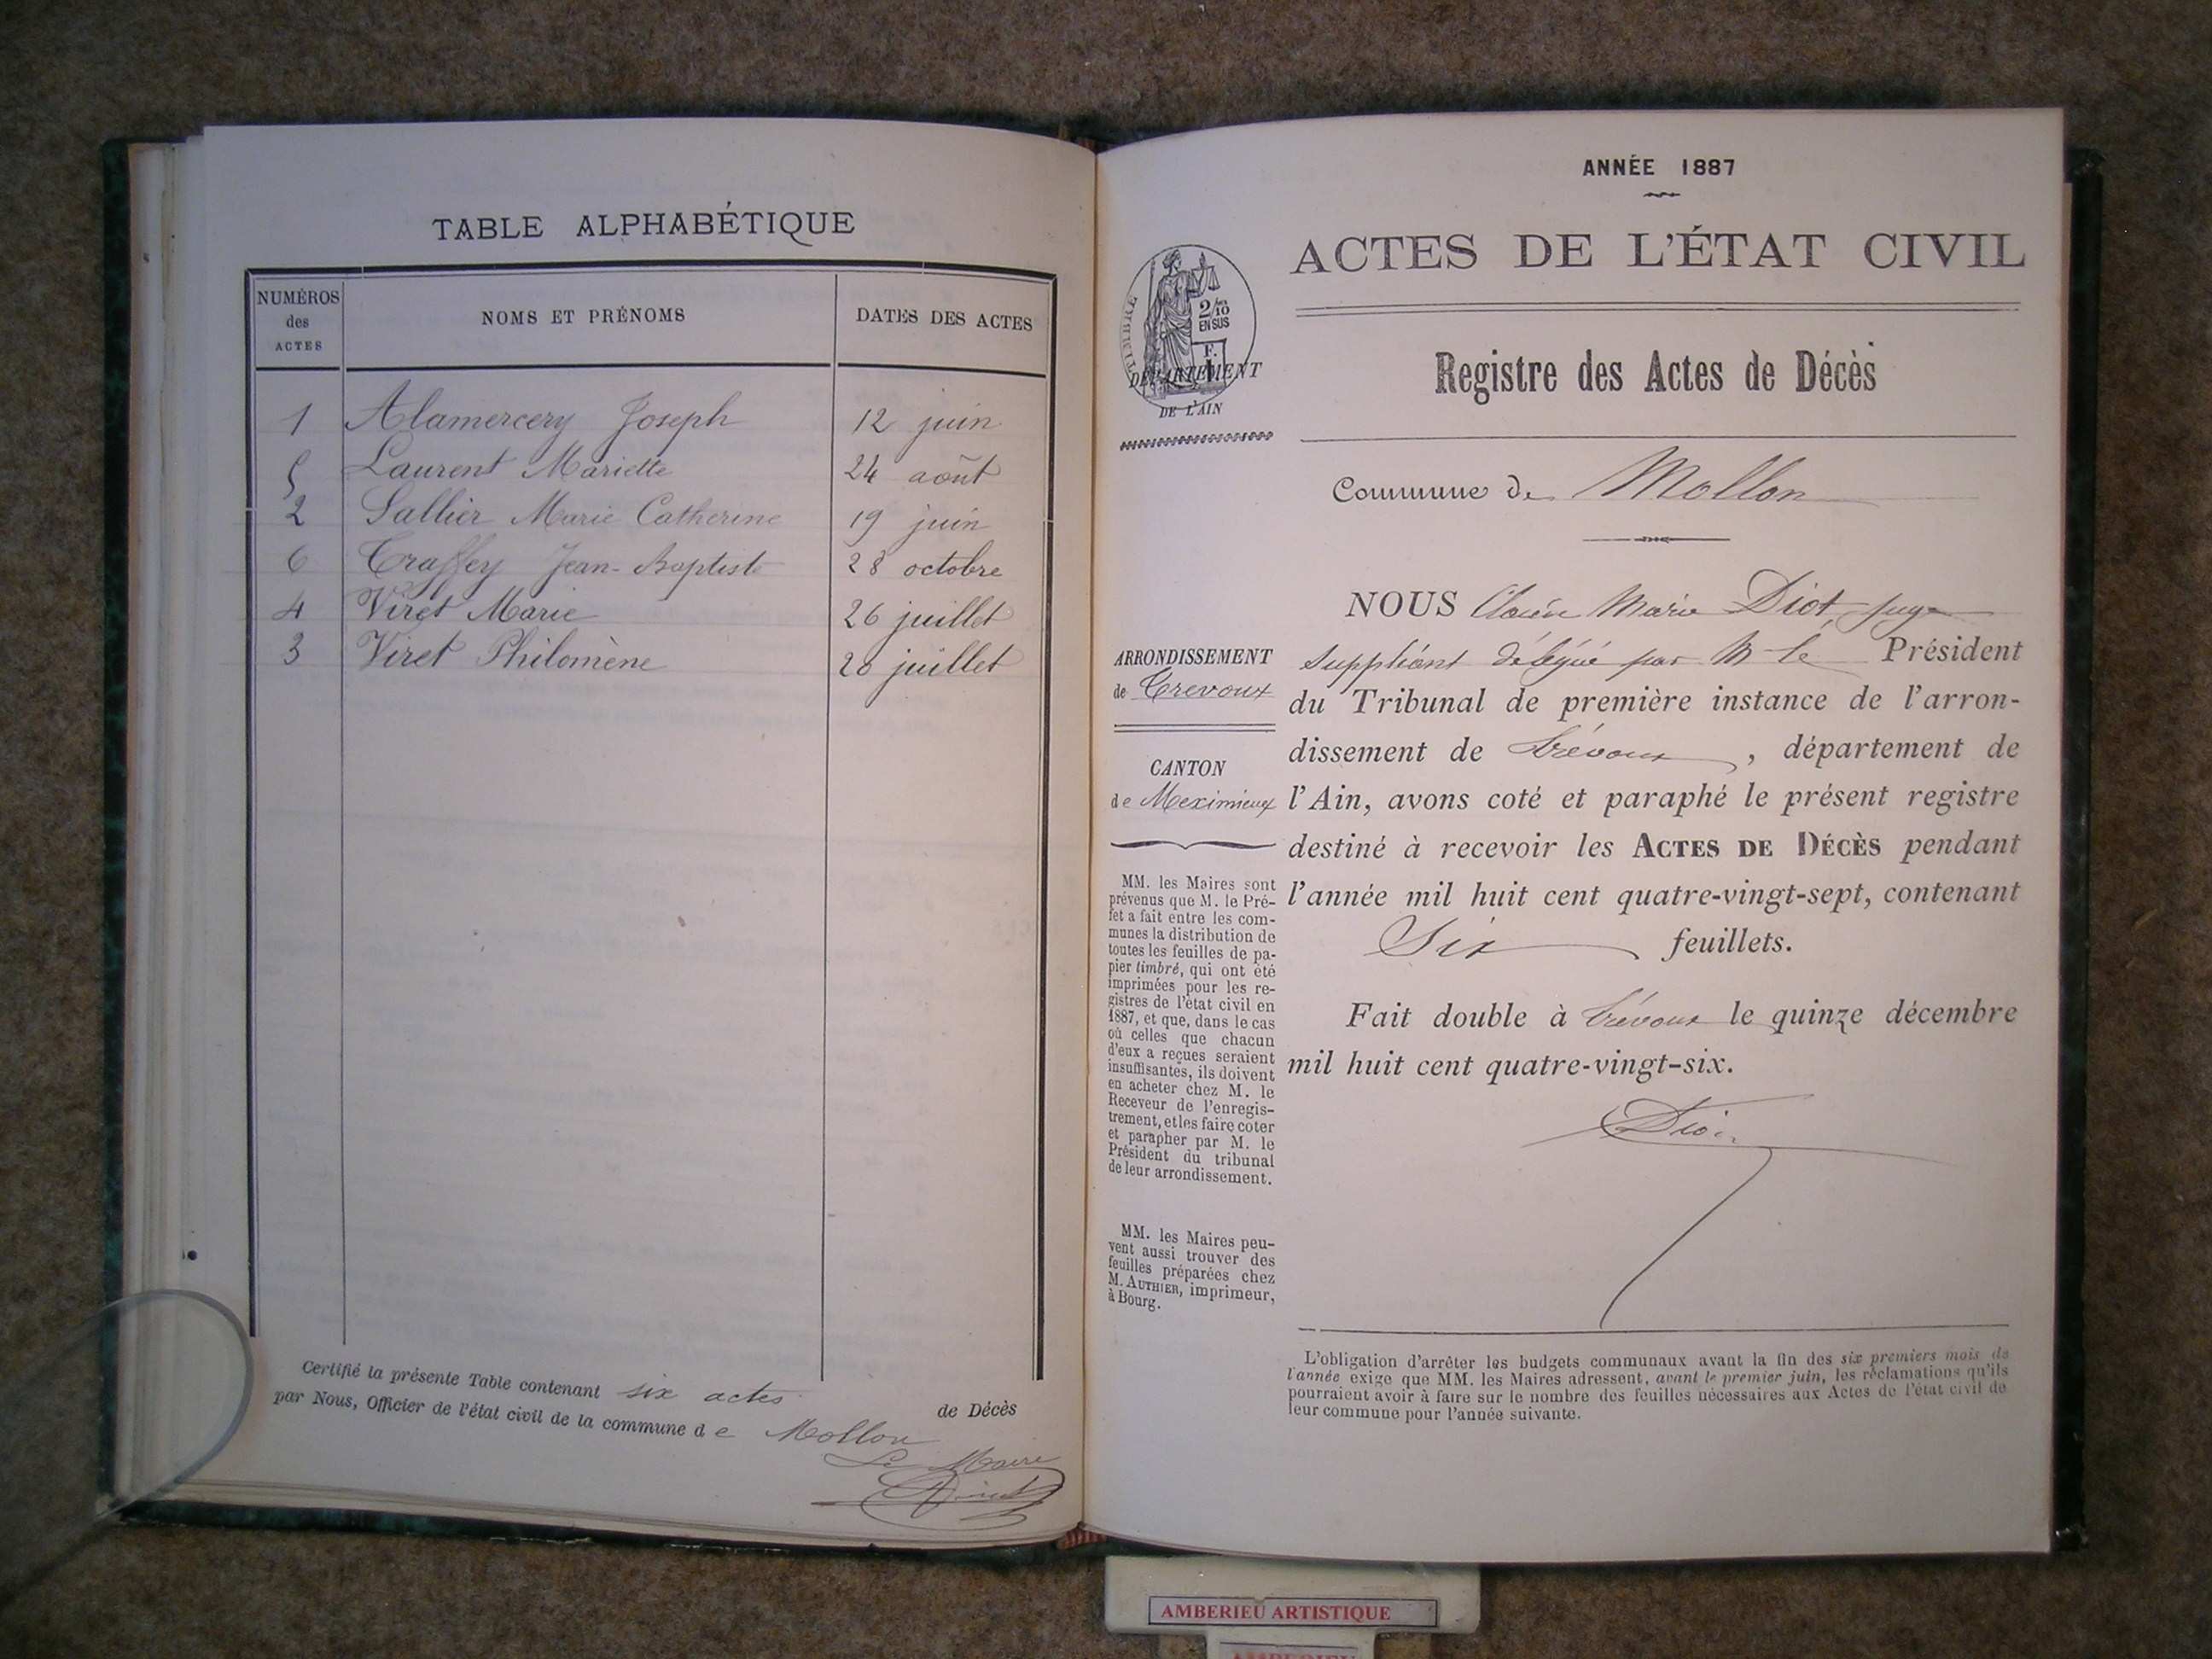 TABLE ALPHABÉTIQUE
NUMÉROS des ACTES
NOMS ET PRÉNOMS
DATES DES ACTES
1 Alamercery Joseph 12 juin
5 Laurent Mariette 24 août
2 Sallier Marie Catherine 19 juin
6 Traffey Jean-Baptiste 28 octobre
4 Viret Marie 26 juillet
3 Viret Philomène 20 juillet
Certifié la présente Table contenant six actes de Décès
par Nous, Officier de l'état civil de la commune de Mollon
Le Maire
ANNÉE 1887
ACTES DE L'ÉTAT CIVIL
TIMBRE
2/10
EN SUS
F.
DÉPARTEMENT
DE L'AIN
Registre des Actes de Décès
Commune de Mollon
ARRONDISSEMENT
de Trevoux
CANTON
de Meximieux
MM. les Maires sont
prévenus que M. le Pré-
fet a fait entre les com-
munes la distribution de
toutes les feuilles de pa-
pier timbré, qui ont été
imprimées pour les re-
gistres de l'état civil en
1887, et que, dans le cas
où celles que chacun
d'eux a reçues seraient
insuffisantes, ils doivent
en acheter chez M. le
Receveur de l'enregis-
trement, et les faire coter
et parapher par M. le
Président du tribunal
de leur arrondissement.
MM. les Maires peu-
vent aussi trouver des
feuilles préparées chez
M. AUTHIER, imprimeur,
à Bourg.
NOUS Marie Diot, juge
suppléant délégué par M le Président
du Tribunal de première instance de l'arron-
dissement de Trévoux, département de
l'Ain, avons coté et paraphé le présent registre
destiné à recevoir les ACTES DE DÉCÈS pendant
l'année mil huit cent quatre-vingt-sept, contenant
Six feuillets.
Fait double à Trévoux le quinze décembre
mil huit cent quatre-vingt-six.
Diot
L'obligation d'arrêter les budgets communaux avant la fin des six premiers mois de
l'année exige que MM. les Maires adressent, avant le premier juin, les réclamations qu'ils
pourraient avoir à faire sur le nombre des feuilles nécessaires aux Actes de l'état civil de
leur commune pour l'année suivante.
AMBERIEU ARTISTIQUE
AMBERIEU